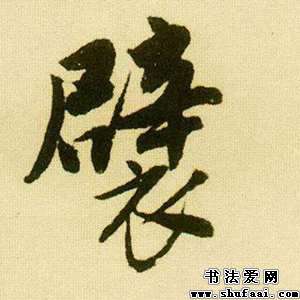 襞
书法爱网
www.shufaai.com